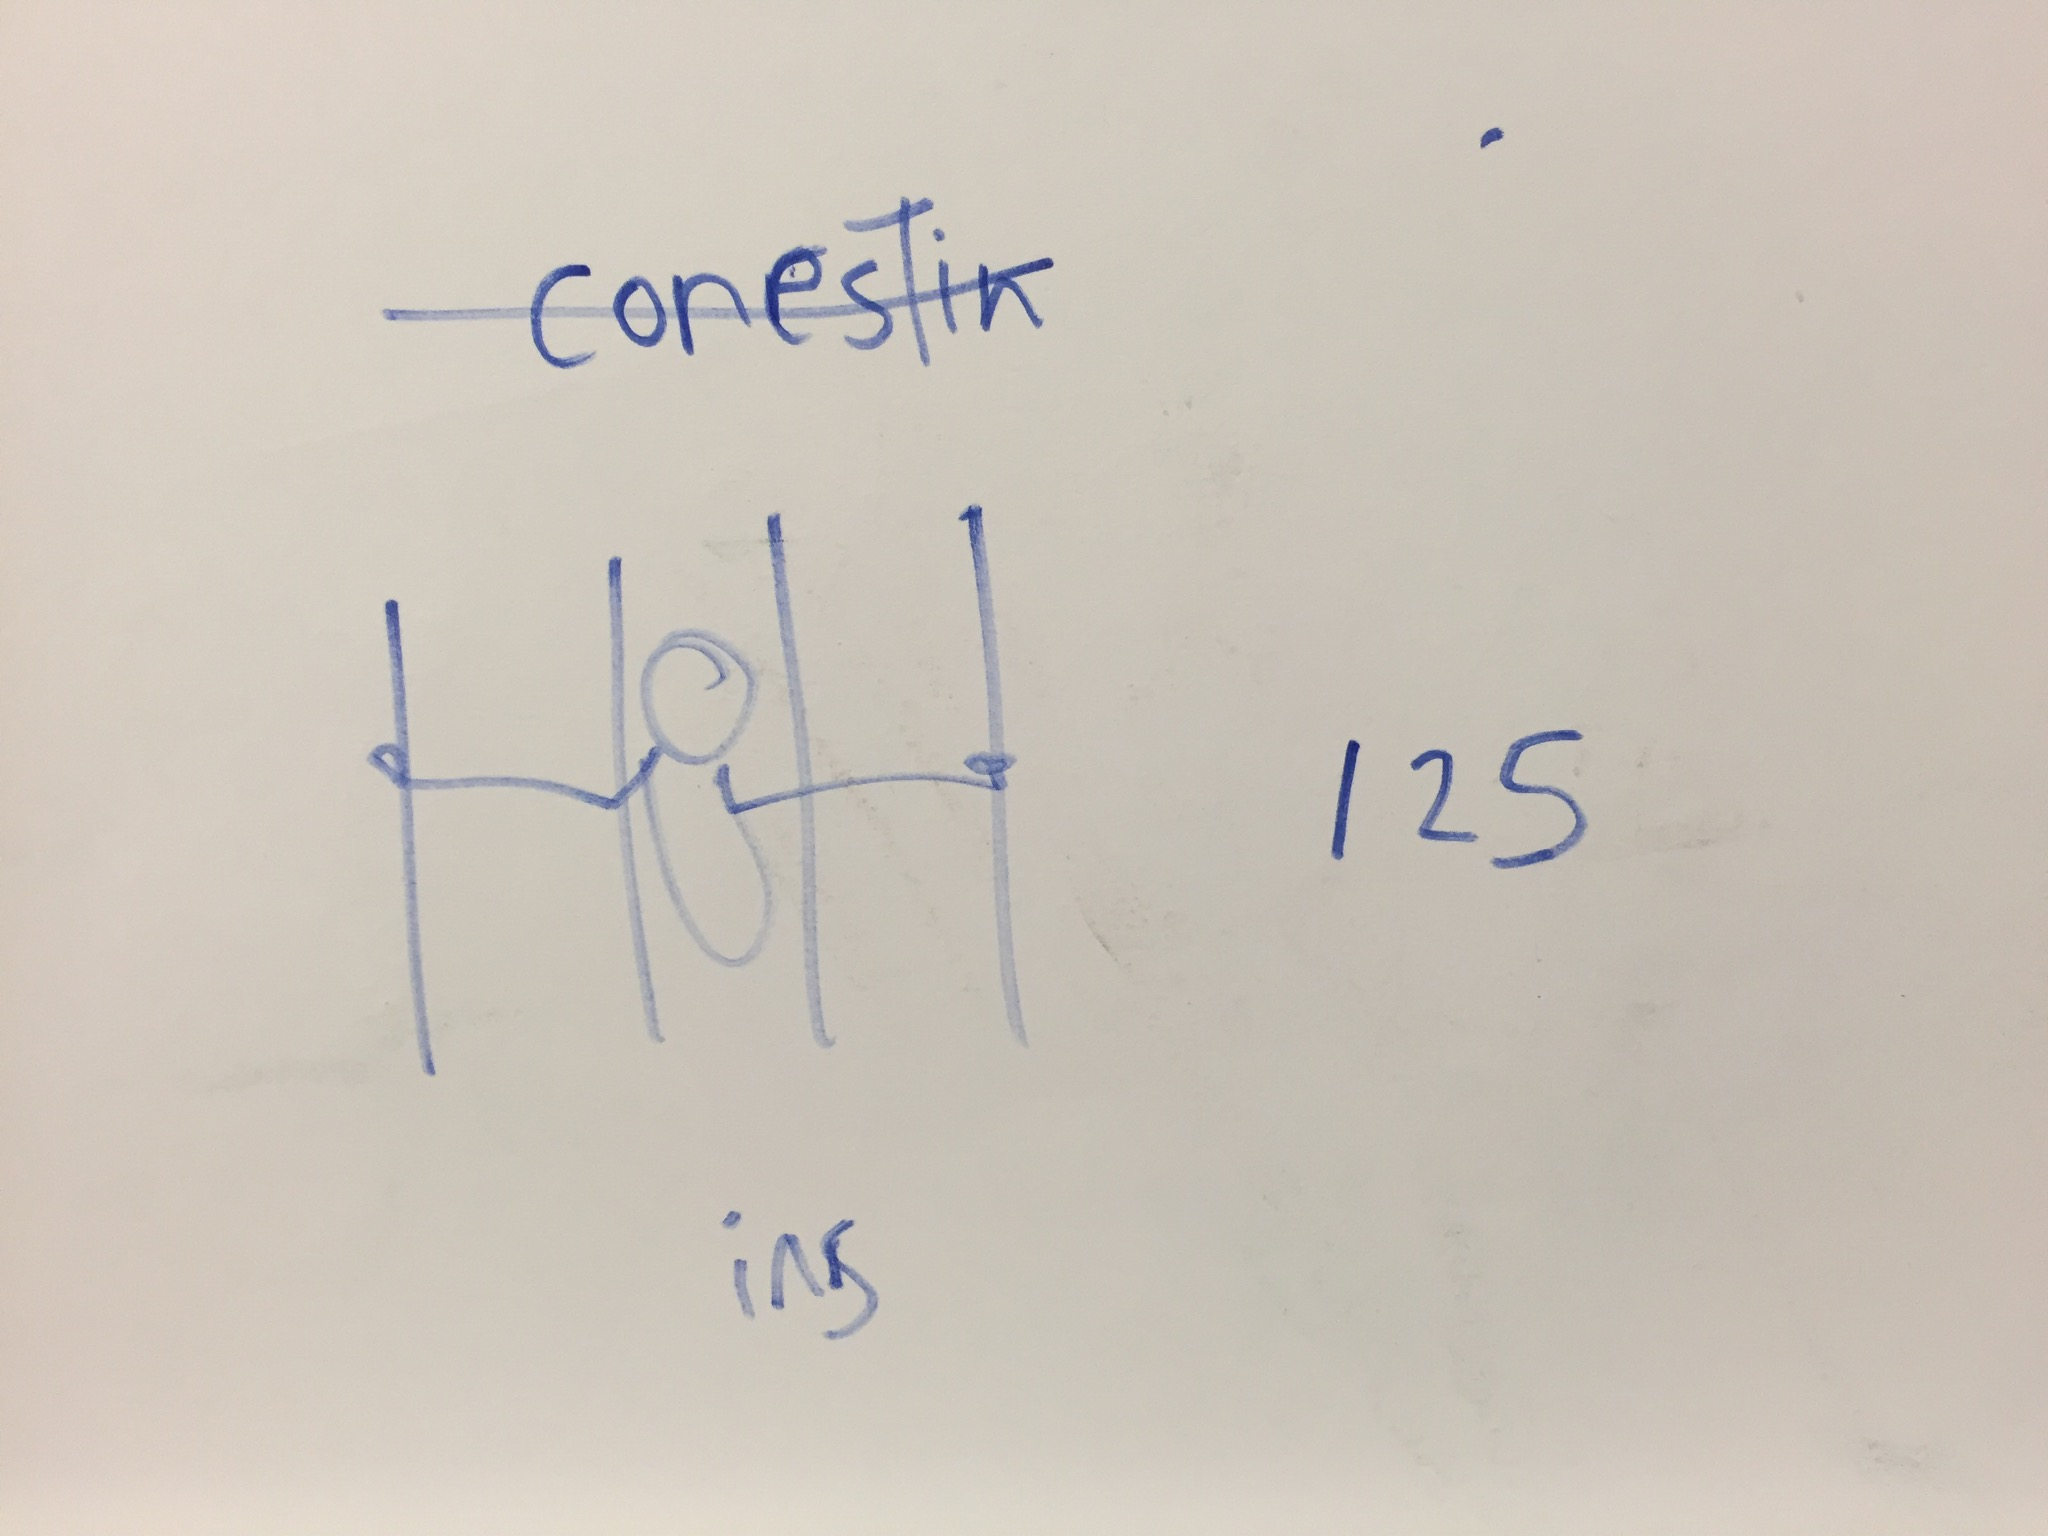 conestin
125
ins